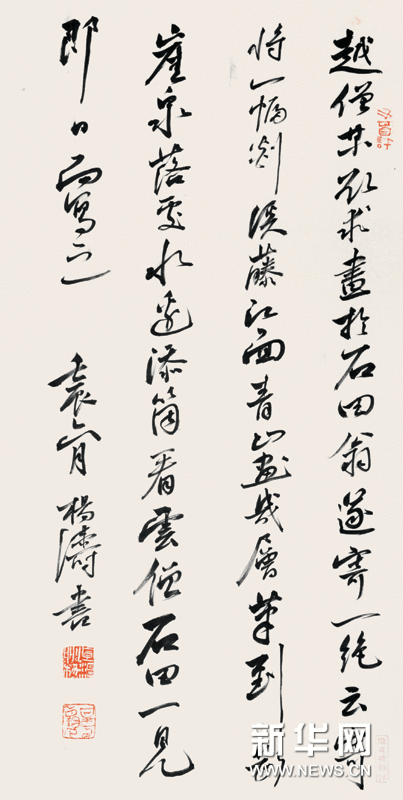 越僧某欲求畫於石田翁遂寄一绝云寄
將一幅剡溪藤江面青山畫幾層筆到斷
崖泉落處水邊添箇看雲僧石田一見
即日而寫之 壬辰六月 楊濤書
新华网
WWW.NEWS.CN